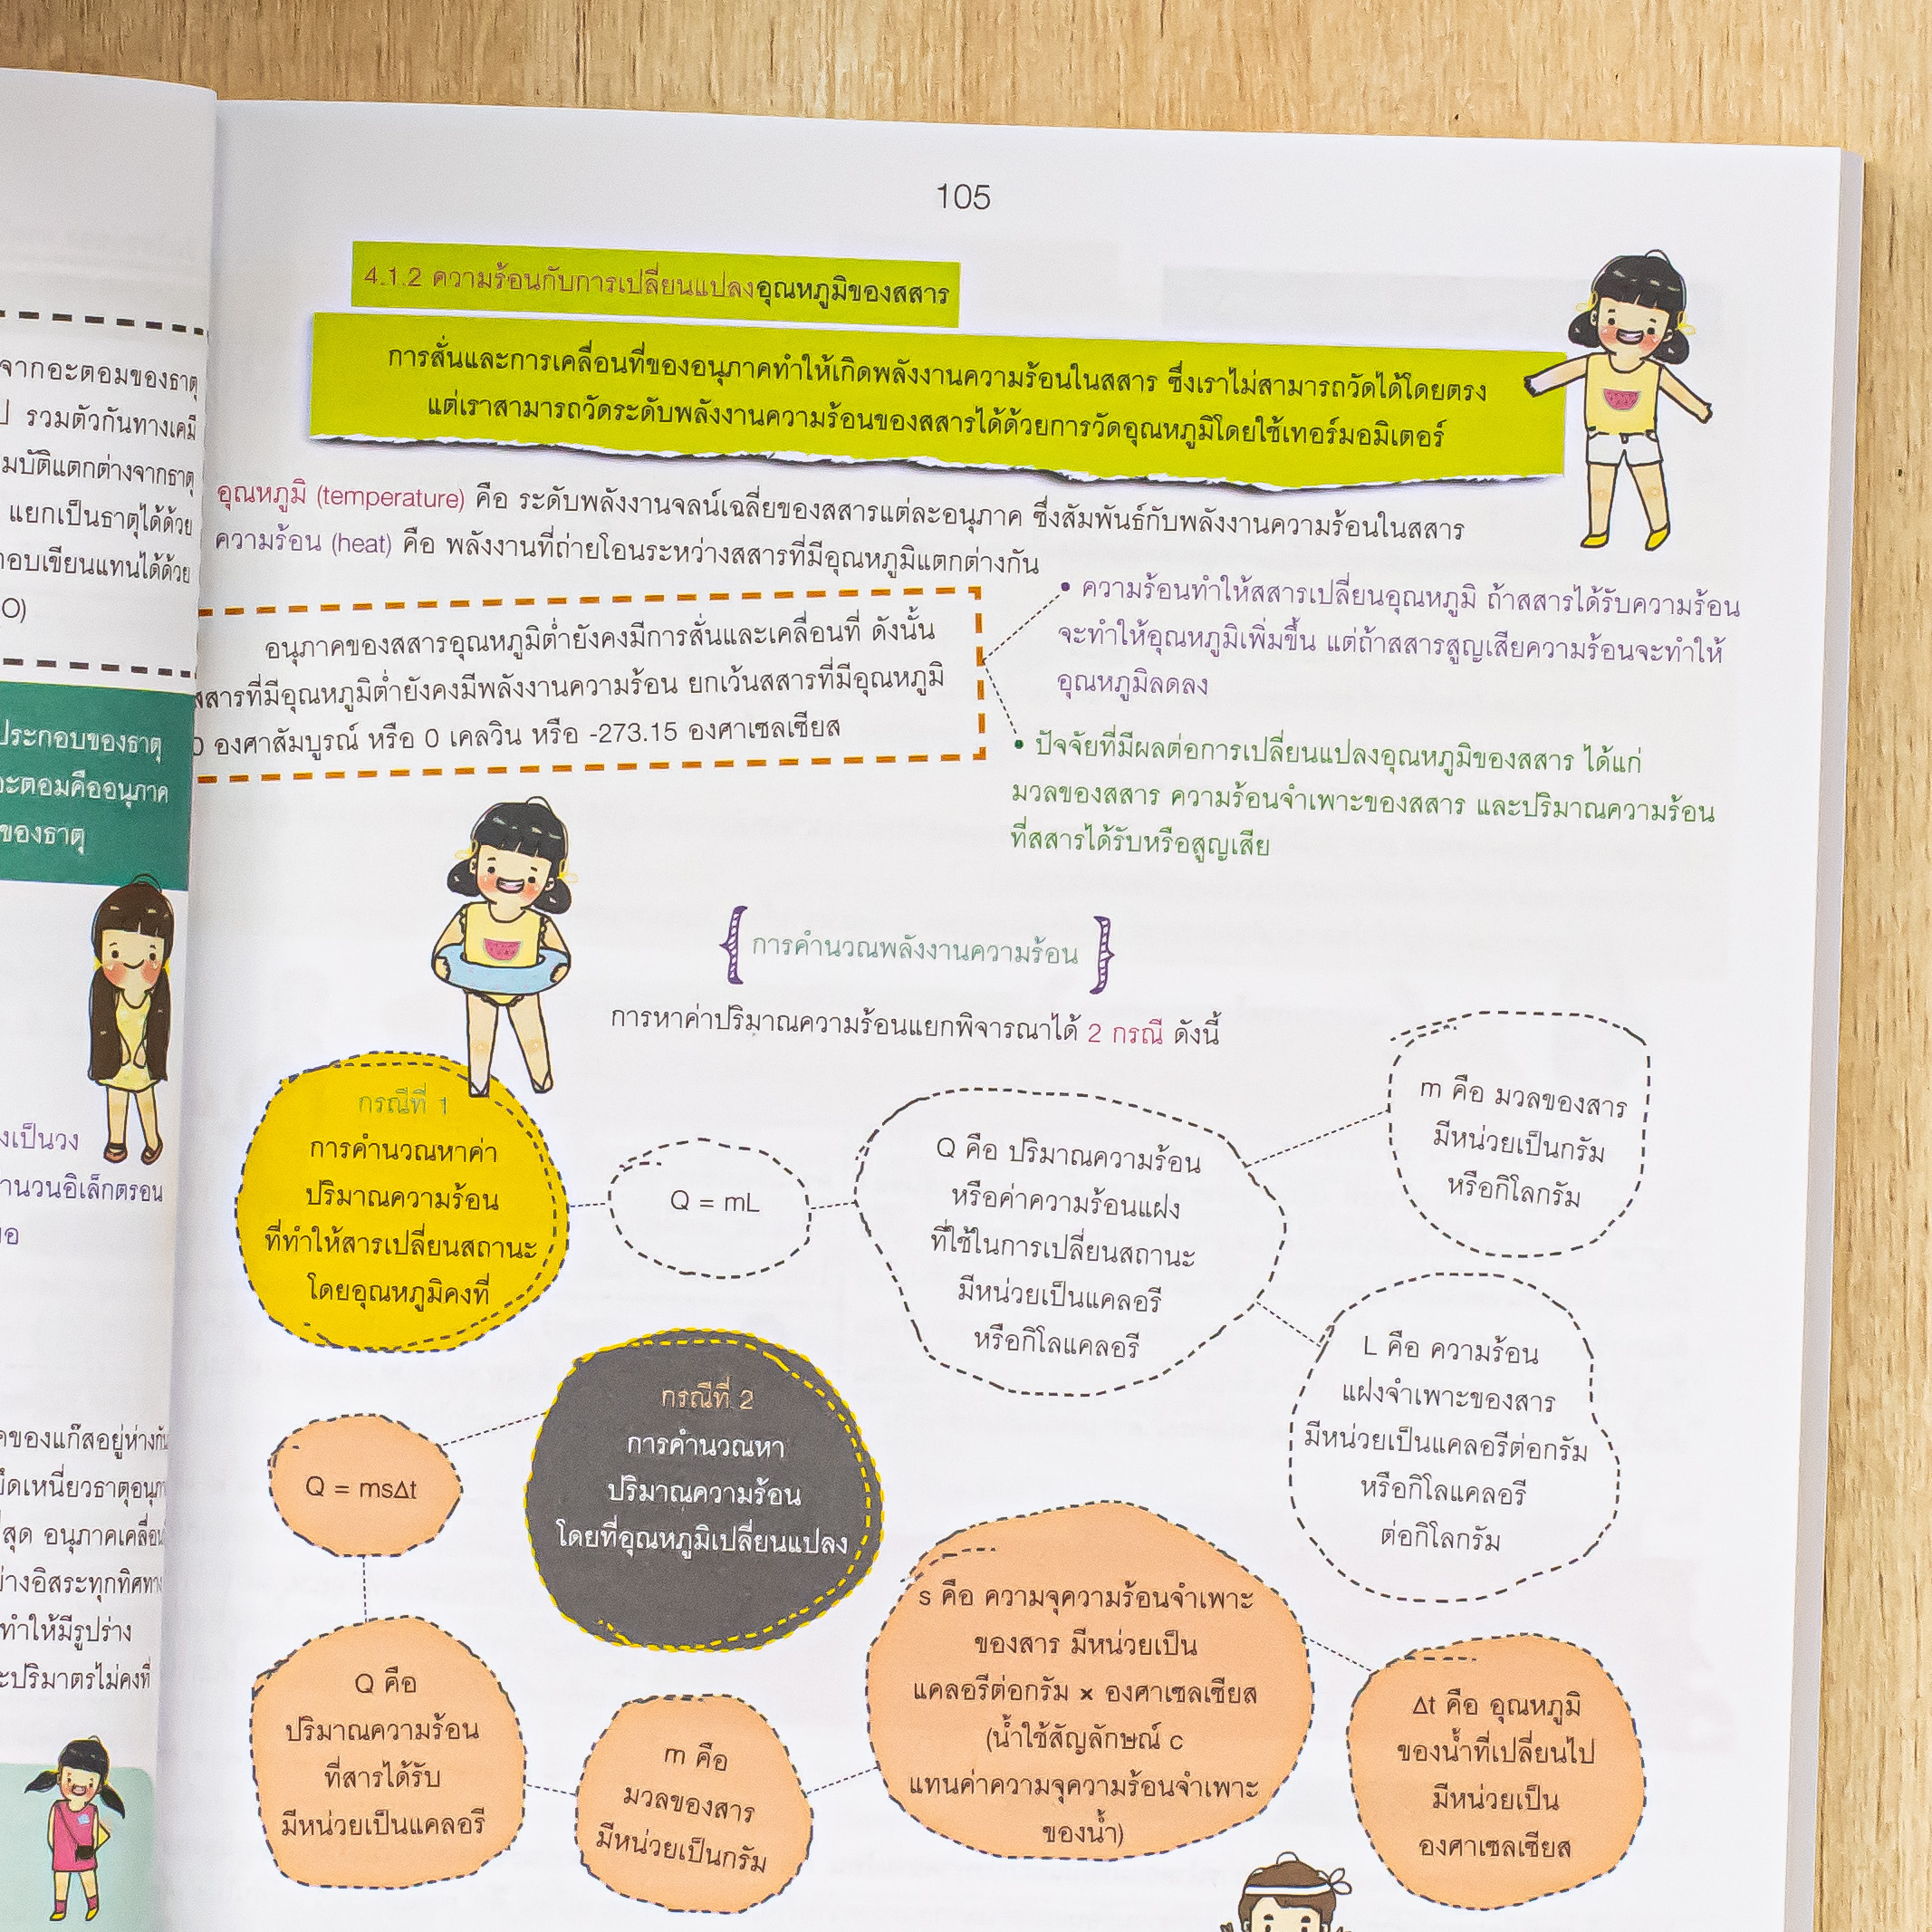 จากอะตอมของธาตุ
รวมตัวกันทางเคมี
มบัติแตกต่างจากธาตุ
แยกเป็นธาตุได้ด้วย
อบเขียนแทนได้ด้วย
O)
ประกอบของธาตุ
ะตอมคืออนุภาค
ของธาตุ
งเป็นวง
านวนอิเล็กตรอน
คของแก๊สอยู่ห่างกัน
ยึดเหนี่ยวธาตุอนุภ
สุด อนุภาคเคลื่อน
ย่างอิสระทุกทิศทาง
ทำให้มีรูปร่าง
ะปริมาตรไม่คงที่
105
4.1.2 ความร้อนกับการเปลี่ยนแปลงอุณหภูมิของสสาร
การสั่นและการเคลื่อนที่ของอนุภาคทำให้เกิดพลังงานความร้อนในสสาร ซึ่งเราไม่สามารถวัดได้โดยตรง
แต่เราสามารถวัดระดับพลังงานความร้อนของสสารได้ด้วยการวัดอุณหภูมิโดยใช้เทอร์มอมิเตอร์
อุณหภูมิ (temperature) คือ ระดับพลังงานจลน์เฉลี่ยของสสารแต่ละอนุภาค ซึ่งสัมพันธ์กับพลังงานความร้อนในสสาร
ความร้อน (heat) คือ พลังงานที่ถ่ายโอนระหว่างสสารที่มีอุณหภูมิแตกต่างกัน
อนุภาคของสสารอุณหภูมิต่ำยังคงมีการสั่นและเคลื่อนที่ ดังนั้น
สสารที่มีอุณหภูมิต่ำยังคงมีพลังงานความร้อน ยกเว้นสสารที่มีอุณหภูมิ
0 องศาสัมบูรณ์ หรือ 0 เคลวิน หรือ -273.15 องศาเซลเซียส
• ความร้อนทำให้สสารเปลี่ยนอุณหภูมิ ถ้าสสารได้รับความร้อน
จะทำให้อุณหภูมิเพิ่มขึ้น แต่ถ้าสสารสูญเสียความร้อนจะทำให้
อุณหภูมิลดลง
• ปัจจัยที่มีผลต่อการเปลี่ยนแปลงอุณหภูมิของสสาร ได้แก่
มวลของสสาร ความร้อนจำเพาะของสสาร และปริมาณความร้อน
ที่สสารได้รับหรือสูญเสีย
{ การคำนวณพลังงานความร้อน }
การหาค่าปริมาณความร้อนแยกพิจารณาได้ 2 กรณี ดังนี้
กรณีที่ 1
การคำนวณหาค่า
ปริมาณความร้อน
ที่ทำให้สารเปลี่ยนสถานะ
โดยอุณหภูมิคงที่
Q = mL
Q คือ ปริมาณความร้อน
หรือค่าความร้อนแฝง
ที่ใช้ในการเปลี่ยนสถานะ
มีหน่วยเป็นแคลอรี
หรือกิโลแคลอรี
m คือ มวลของสาร
มีหน่วยเป็นกรัม
หรือกิโลกรัม
L คือ ความร้อน
แฝงจำเพาะของสาร
มีหน่วยเป็นแคลอรีต่อกรัม
หรือกิโลแคลอรี
ต่อกิโลกรัม
กรณีที่ 2
การคำนวณหา
ปริมาณความร้อน
โดยที่อุณหภูมิเปลี่ยนแปลง
Q = msΔt
Q คือ
ปริมาณความร้อน
ที่สารได้รับ
มีหน่วยเป็นแคลอรี
m คือ
มวลของสาร
มีหน่วยเป็นกรัม
s คือ ความจุความร้อนจำเพาะ
ของสาร มีหน่วยเป็น
แคลอรีต่อกรัม × องศาเซลเซียส
(น้ำใช้สัญลักษณ์ c
แทนค่าความจุความร้อนจำเพาะ
ของน้ำ)
Δt คือ อุณหภูมิ
ของน้ำที่เปลี่ยนไป
มีหน่วยเป็น
องศาเซลเซียส